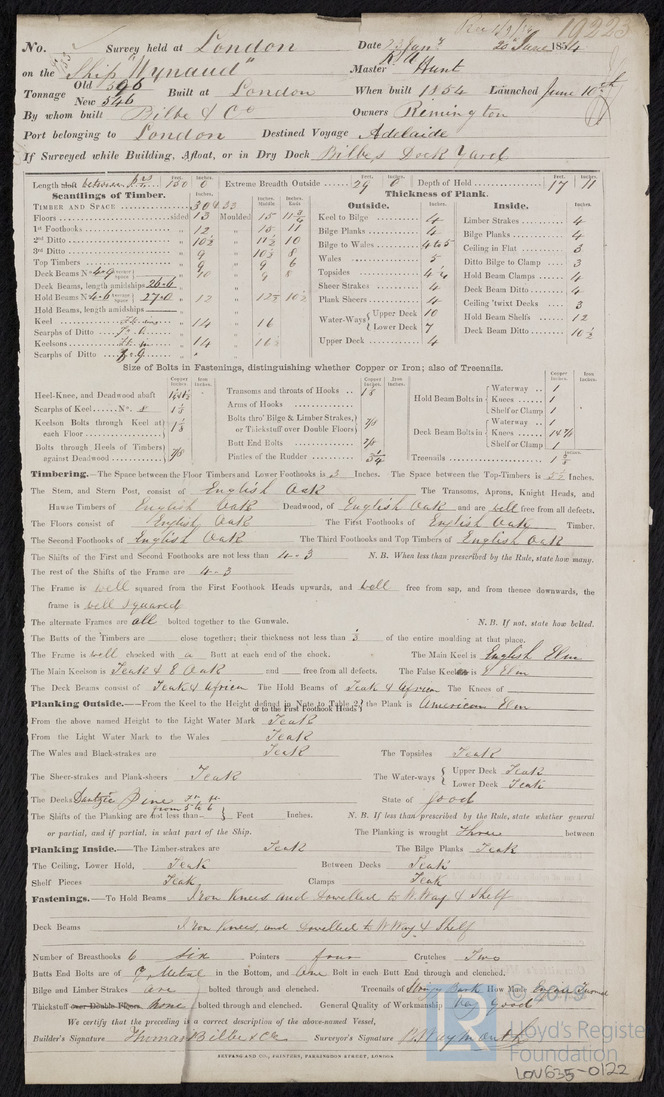 19223
No. Survey held at London Date 23 Jany 25 June 1854
on the Ship "Wynaud" Master Hunt
Tonnage Old 596 New 546 Built at London When built 1854 Launched June 10th
By whom built Bilbe & Co Owners Remington
Port belonging to London Destined Voyage Adelaide
If Surveyed while Building, Afloat, or in Dry Dock Bilbe's Dock Yard
Length aloft Feet. 150 Inches. 0 Extreme Breadth Outside Feet. 29 Inches. 0 Depth of Hold Feet. 17 Inches. 11
Scantlings of Timber. Thickness of Plank.
Outside. Inside.
TIMBER AND SPACE 30 & 33
Floors sided 13 Moulded 15 Keel to Bilge 4 Limber Strakes 4
1st Foothooks 12 Bilge Planks 4 Bilge Planks 4
2nd Ditto 10½ 11½ 10 Bilge to Wales 4 to 5 Ceiling in Flat 3
3rd Ditto 9 10½ 8 Wales 5 Ditto Bilge to Clamp 3
Top Timbers 9 9 6 Topsides Hold Beam Clamps 4
Deck Beams No 9 8 Sheer Strakes 4 Deck Beam Ditto 4
Deck Beams, length amidships 26-6 Plank Sheers 4 Ceiling 'twixt Decks 3
Hold Beams 27-0 12 10½ Water-Ways Upper Deck 10 Lower Deck 7 Hold Beam Shelfs 12
Hold Beams, length amidships Upper Deck 4 Deck Beam Ditto 10½
Keel 14 16
Scarphs of Ditto
Keelsons 14
Scarphs of Ditto
Size of Bolts in Fastenings, distinguishing whether Copper or Iron; also of Treenails.
Copper Inches. Iron Inches.
Heel-Knee, and Deadwood abaft Transoms and throats of Hooks Hold Beam Bolts in Waterway 1 Knees 1 Shelf or Clamp 1
Scarphs of Keel No. 8 Arms of Hooks
Keelson Bolts through Keel at each Floor 1⅛ Bolts thro' Bilge & Limber Strakes, or Thickstuff over Double Floors 7/8 Deck Beam Bolts in Waterway 1 Knees Shelf or Clamp 1
Bolts through Heels of Timbers against Deadwood 7/8 Butt End Bolts 7/8
Pintles of the Rudder Treenails
Timbering.—The Space between the Floor Timbers and Lower Foothooks is 3 Inches. The Space between the Top-Timbers is Inches.
The Stem, and Stern Post, consist of English Oak The Transoms, Aprons, Knight Heads, and
Hawse Timbers of English Oak Deadwood, of English Oak and are well free from all defects.
The Floors consist of English Oak The First Foothooks of English Oak Timber.
The Second Foothooks of English Oak The Third Foothooks and Top Timbers of English Oak
The Shifts of the First and Second Foothooks are not less than 4-3 N. B. When less than prescribed by the Rule, state how many.
The rest of the Shifts of the Frame are 4-3
The Frame is well squared from the First Foothook Heads upwards, and well free from sap, and from thence downwards, the
frame is well squared
The alternate Frames are all bolted together to the Gunwale. N. B. If not, state how bolted.
The Butts of the Timbers are close together; their thickness not less than ⅓ of the entire moulding at that place.
The Frame is well chocked with a Butt at each end of the chock. The Main Keel is English Elm
The Main Keelson is Teak & E Oak and free from all defects. The False Keel is E Elm
The Deck Beams consist of Teak & African The Hold Beams of Teak & African The Knees of
Planking Outside.—From the Keel to the Height defined in Note to Table 2 or to the First Foothook Heads the Plank is American Elm
From the above named Height to the Light Water Mark Teak
From the Light Water Mark to the Wales Teak
The Wales and Black-strakes are Teak The Topsides Teak
The Sheer-strakes and Plank-sheers Teak The Water-ways Upper Deck Teak Lower Deck Teak
The Decks Dantzic Pine State of good
The Shifts of the Planking are not less than from 5 to 6 Feet Inches. N. B. If less than prescribed by the Rule, state whether general
or partial, and if partial, in what part of the Ship. The Planking is wrought three between
Planking Inside.—The Limber-strakes are Teak The Bilge Planks Teak
The Ceiling, Lower Hold, Teak Between Decks Teak
Shelf Pieces Teak Clamps Teak
Fastenings.—To Hold Beams Iron Knees and dovelled to W.Way & Shelf
Deck Beams Iron Knees, and dovelled to W Way & Shelf
Number of Breasthooks 6 six Pointers four Crutches Two
Butts End Bolts are of Y Metal in the Bottom, and one Bolt in each Butt End through and clenched.
Bilge and Limber Strakes are bolted through and clenched. Treenails of How Made Engine Turned
Thickstuff over Double Floors none bolted through and clenched. General Quality of Workmanship Very good
We certify that the preceding is a correct description of the above-named Vessel,
Builder's Signature Thomas Bilbe & Co Surveyor's Signature B Waymouth
SEYFANG AND CO., PRINTERS, FARRINGDON STREET, LONDON
© 2019
Lloyd's Register
Foundation
LON635-0122